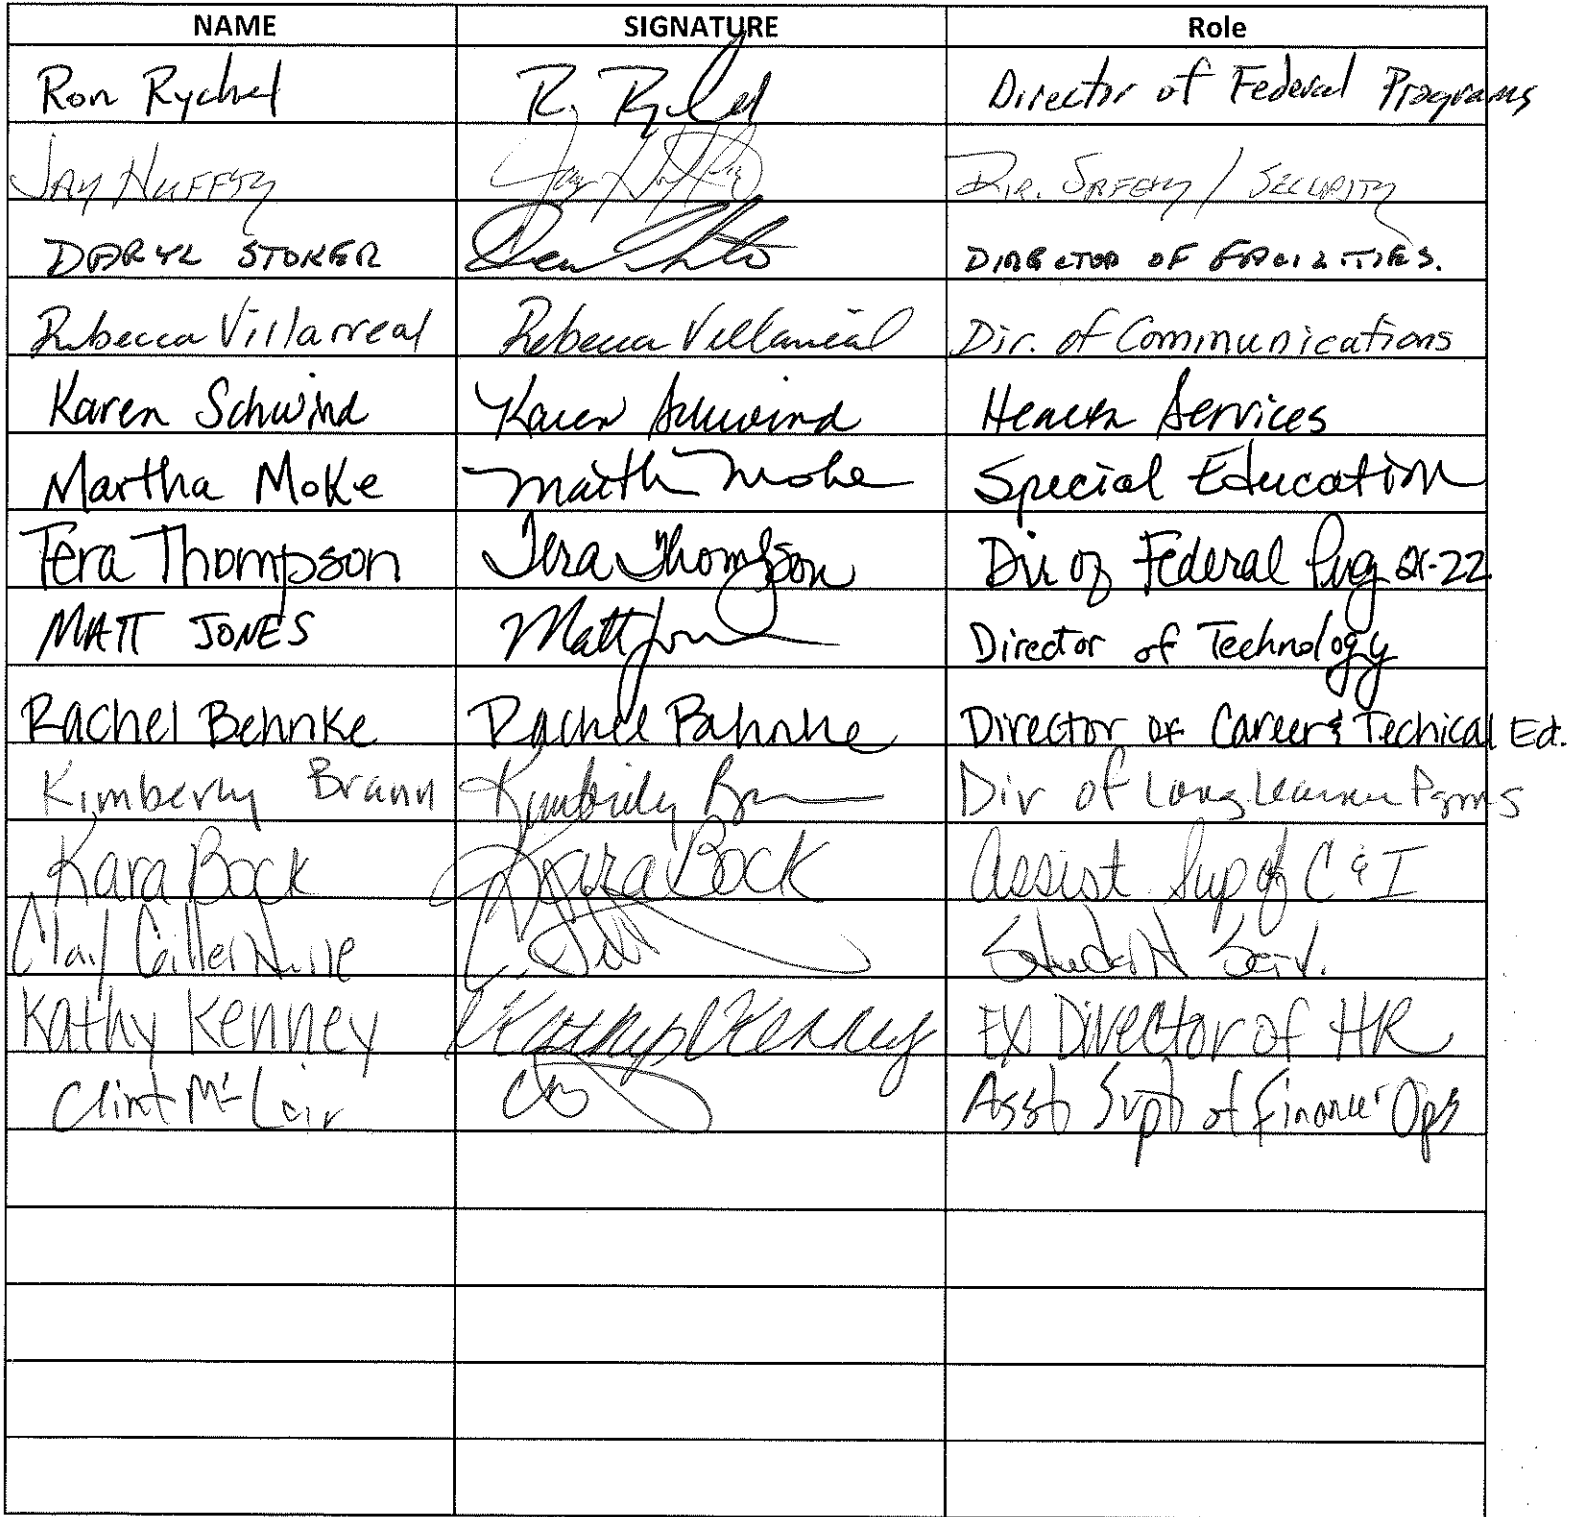 NAME SIGNATURE Role
Ron Rychel R. Rychel Director of Federal Programs
JAY HUFFTY Jay Huffty DIR. SAFETY / SECURITY
DARYL STOKER DIRECTOR OF FACILITIES.
Rebecca Villarreal Rebecca Villarreal Dir. of Communications
Karen Schwind Karen Schwind Health Services
Martha Moke Martha Moke Special Education
Tera Thompson Tera Thompson Dir of Federal Prog 21-22
MATT JONES Matt Jones Director of Technology
Rachel Behnke Rachel Behnke Director of Career & Techical Ed.
Kimberly Brann Kimberly Dir of Lang Learner Pgms
Kara Bock Kara Bock Assist Sup of C & I
Clay Student Serv.
Kathy Kenney Kathy Kenney EX Director of HR
Clint Asst Supt of Finance Ops